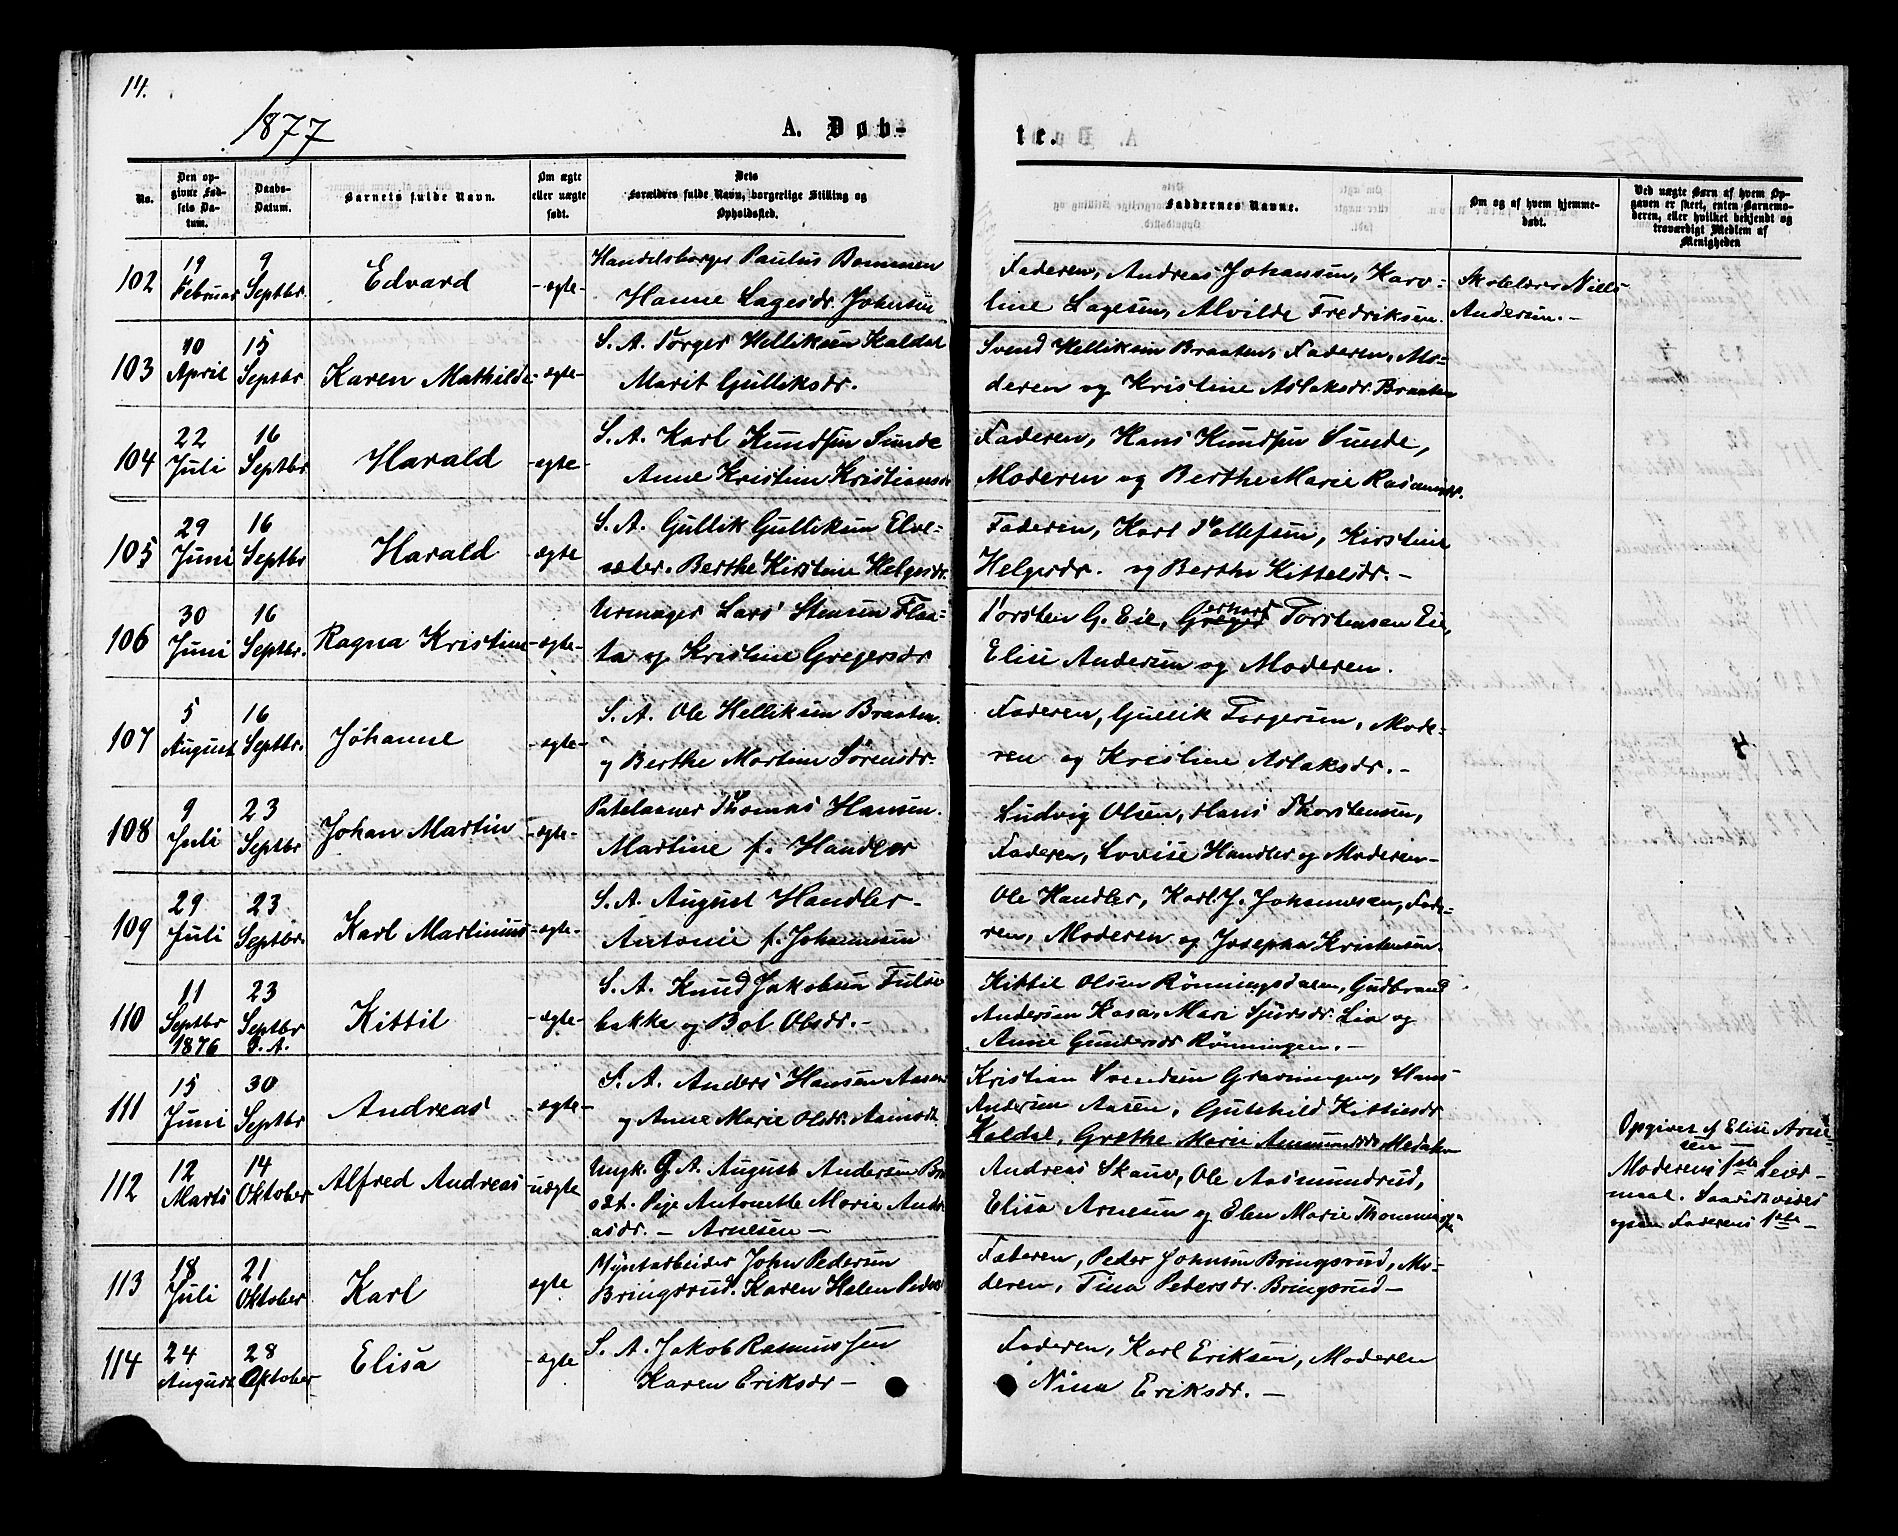 14.
1877
A. Døb-
te.
No.
Den op-
givne Fød-
sels Da-
tum.
Daabs-
Datum.
Barnets fulde Navn.
Om ægte
eller uægte
født.
Dets
Forældres fulde Navn, borgerlige Stilling og
Opholdssted.
Faddernes Navne.
Om og af hvem hjemme-
døbt.
Ved uægte Børn af hvem Op-
gaven er skeet, enten Barnemo-
deren, eller hvilket bekjendt og
troværdigt Medlem af
Menigheden
102
19 Februar
9 Septbr.
Edvard
-ægte-
Handelsborger Paulus Bommen
Hanne Lagesdr. Johnsen
Faderen, Andreas Johansen, Karo-
line Lagesen, Alvilde Fredriksen.
Skolelærer Niels
Andersen.-
103
10 April
15 Septbr
Karen Mathilde
-ægte-
S. A. Torger Helliksen Kaldal
Marit Gulliksdr.
Svend Helliksen Braaten, Faderen, Mo-
deren og Kristine Aslaksdr. Braaten
104
22 Juli
16 Septbr
Harald
-ægte-
S. A. Karl Knudsen Sunde
Anne Kristine Kristiansdr
Faderen, Hans Knudsen Sunde,
Moderen og Berthe Marie Rasmusdr.
105
29 Juni
16 Septbr
Harald
-ægte
S. A. Gullik Gulliksen Elve-
sæter. Berthe Kirstine Helgesdr.
Faderen, Karl Tollefsen, Kirstine
Helgesdr. og Berthe Kittelsdr.-
106
30 Juni
16 Septbr.
Ragna Kristine
-ægte-
Urmager Lars Stensen Flaa-
ta og Kristine Gregersdr
Torsten G. Eie, Greger Torstensen Eie,
erhard
Elise Andersen og Moderen.
107
5 August
16 Septbr.
Johanne
-ægte-
S. A. Ole Helliksen Braaten
og Berthe Martine Sørensdr.
Faderen, Gullik Torgersen, Mode-
ren og Kristine Aslaksdr.-
108
9 Juli
23 Septbr
Johan Martin
-ægte-
Thomas Hansen.
Martine f. Handler
Ludvig Olsen, Hans Thorstensen,
Faderen, Lovise Handler og Moderen-
109
29 Juli
23 Septbr.
Karl Martinius
-ægte-
S. A. August Handler-
Antonie f. Johannesen
Ole Handler, Karl J. Johannesen, Fade-
ren, Moderen og Josepha Kristensen.
110
11 Septbr 1876
23 Septbr S. A.
Kittil
-ægte-
S. A. Knud Jakobsen Fulse
bakke og Bol Olsdr.-
Kittil Olsen Rønningsdalen, Gudbrand
Andersen Kasa, Mari Sjursdr. Lia og
Anne Gundersdr Rønningen.-
111
15 Juni
30 Septbr
Andreas
-ægte-
S. A. Anders Hansen Aasen
og Anne Marie Olsdr. Aamodt.
Kristian Svendsen Gravningen, Hans
Andersen Aasen, Guthild Kittilsdr
Kaldal, Grethe Marie Ammundsdr
112
12 Marts
14 Oktober
Alfred Andreas
-uægte
Ungk. G. A. August Andersen
Pige Antonette Marie Andr
asdr. - Arnesen -
Andreas Skauv, Ole Aasmundrud,
Elisa Arnesen og Elen Marie
Opgivet af Elise Arne-
sen
Moderens 1ste Leier-
maal. Saavidt vides
ogsaa Faderens 1ste-
113
18 Juli
21 Oktober
Karl
ægte
Myntarbeider John Pedersen
Bringsrud. Karen Helene Peders
Faderen, Peder Johnsen Bringsrud, Mo-
deren, Tina Pedersdr. Bringsrud-
114
24 August
28 Oktober
Elisa
-ægte
S. A. Jakob Rasmussen
Karen Eriksdr -
Faderen, Karl Eriksen, Moderen
Nina Eriksdr.-